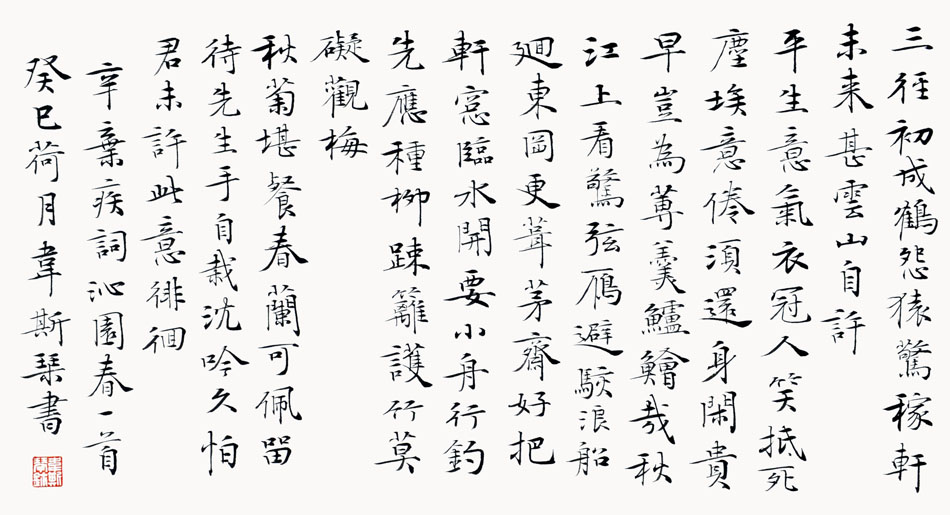 三徑初成鶴怨猿驚稼軒
未来甚雲山自許
平生意氣衣冠人笑抵死
塵埃意倦須還身閑貴
早豈為蓴羹鱸鱠哉秋
江上看驚弦鴈避駭浪船
迴東岡更葺茅齋好把
軒窓臨水開要小舟行釣
先應種柳踈籬護竹莫
礙觀梅
秋菊堪餐春蘭可佩留
待先生手自栽沈吟久怕
君未許此意徘徊
辛棄疾詞沁園春一首
癸巳荷月韋斯琴書